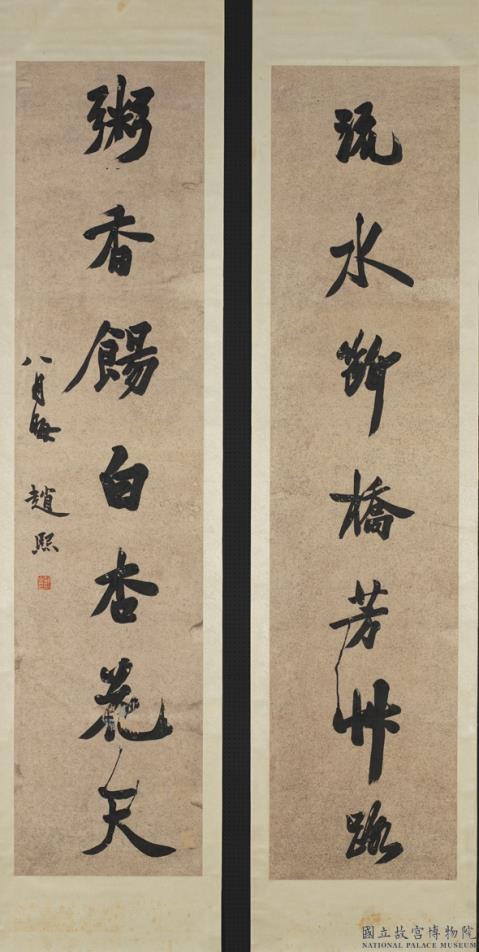 流水斷橋芳艸路
粥香餳白杏花天
八月晦 趙熙
國立故宮博物院
NATIONAL PALACE MUSEUM